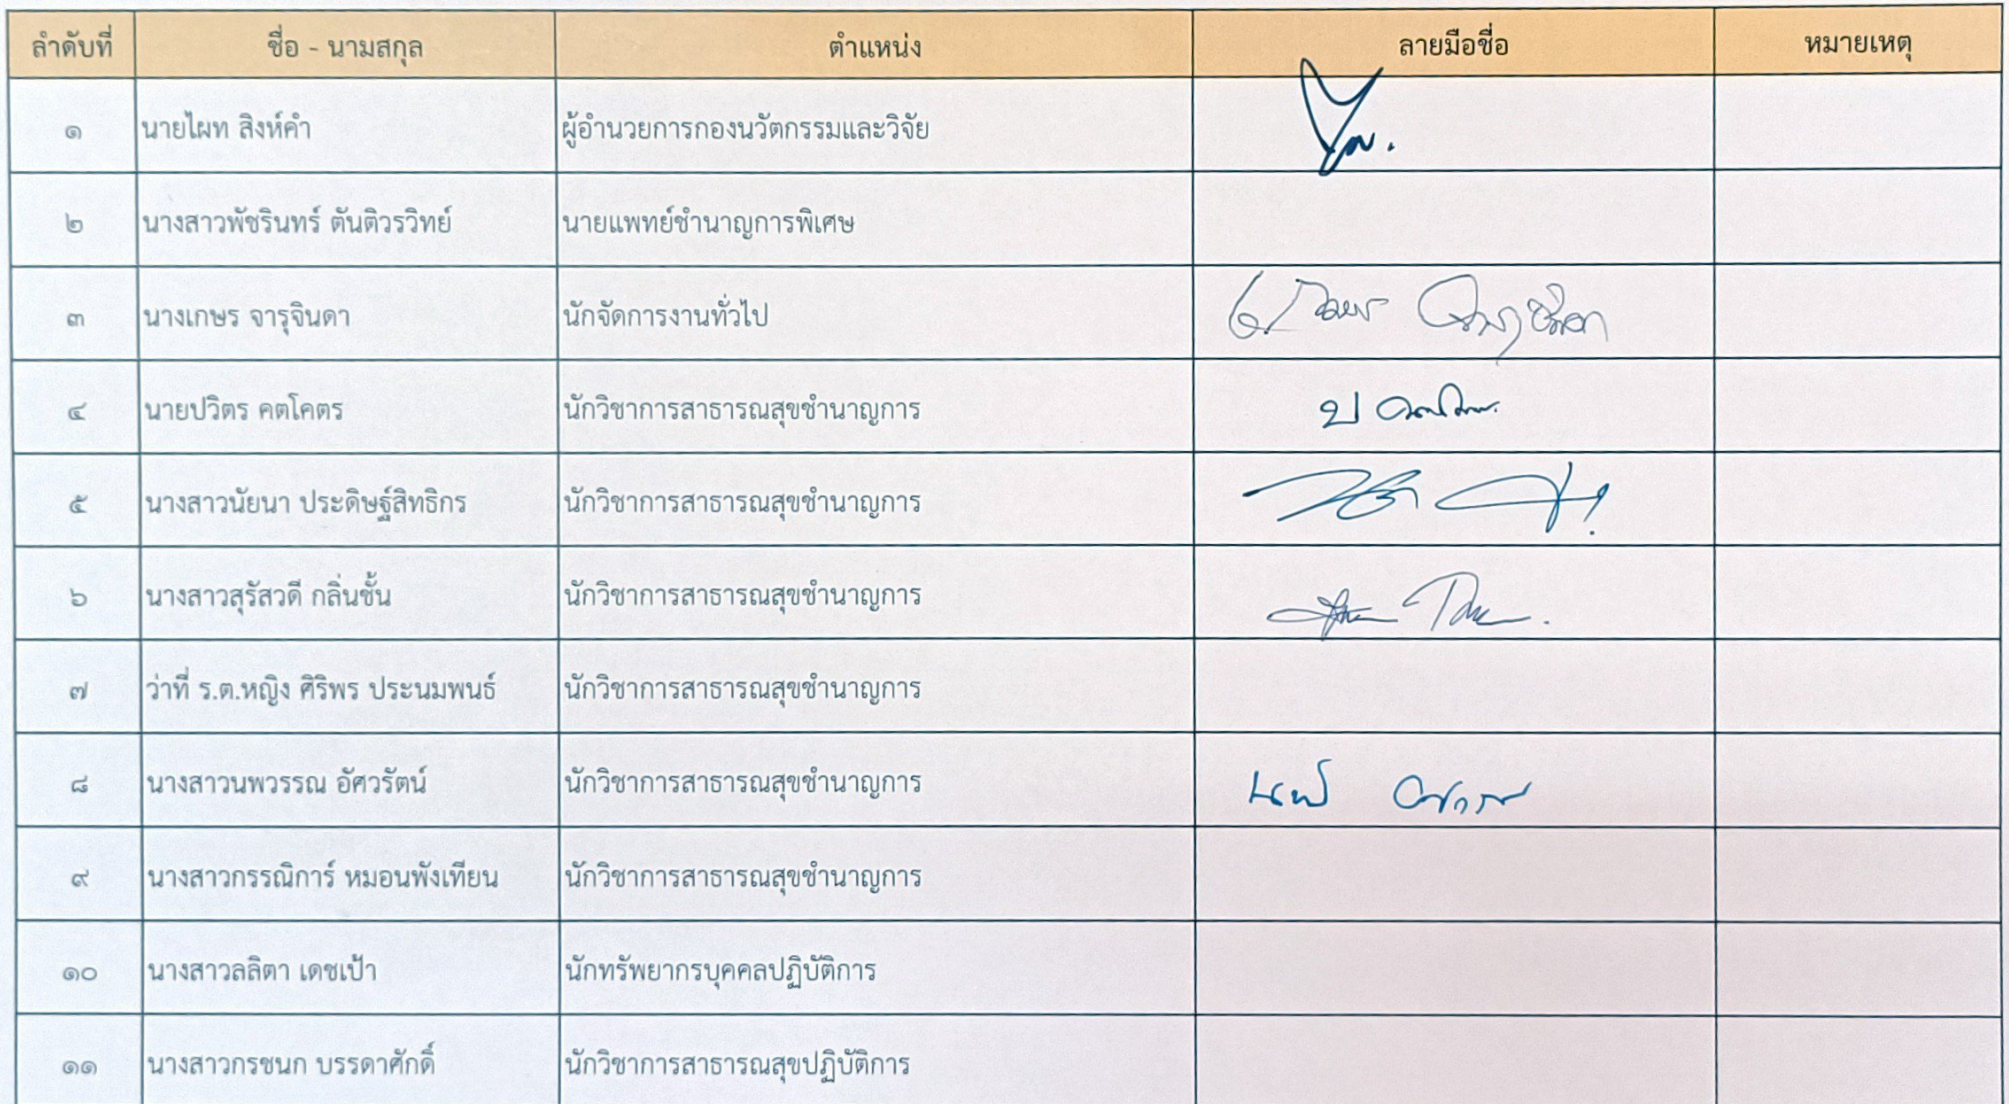 ลำดับที่ ชื่อ - นามสกุล ตำแหน่ง ลายมือชื่อ หมายเหตุ
๑ นายไผท สิงห์คำ ผู้อำนวยการกองนวัตกรรมและวิจัย
๒ นางสาวพัชรินทร์ ตันติวรวิทย์ นายแพทย์ชำนาญการพิเศษ
๓ นางเกษร จารุจินดา นักจัดการงานทั่วไป เกษร จารุจินดา
๔ นายปวิตร คตโคตร นักวิชาการสาธารณสุขชำนาญการ
๕ นางสาวนัยนา ประดิษฐ์สิทธิกร นักวิชาการสาธารณสุขชำนาญการ
๖ นางสาวสุรัสวดี กลิ่นชั้น นักวิชาการสาธารณสุขชำนาญการ
๗ ว่าที่ ร.ต.หญิง ศิริพร ประนมพนธ์ นักวิชาการสาธารณสุขชำนาญการ
๘ นางสาวนพวรรณ อัศวรัตน์ นักวิชาการสาธารณสุขชำนาญการ
๙ นางสาวกรรณิการ์ หมอนพังเทียน นักวิชาการสาธารณสุขชำนาญการ
๑๐ นางสาวลลิตา เดชเป้า นักทรัพยากรบุคคลปฏิบัติการ
๑๑ นางสาวกรชนก บรรดาศักดิ์ นักวิชาการสาธารณสุขปฏิบัติการ